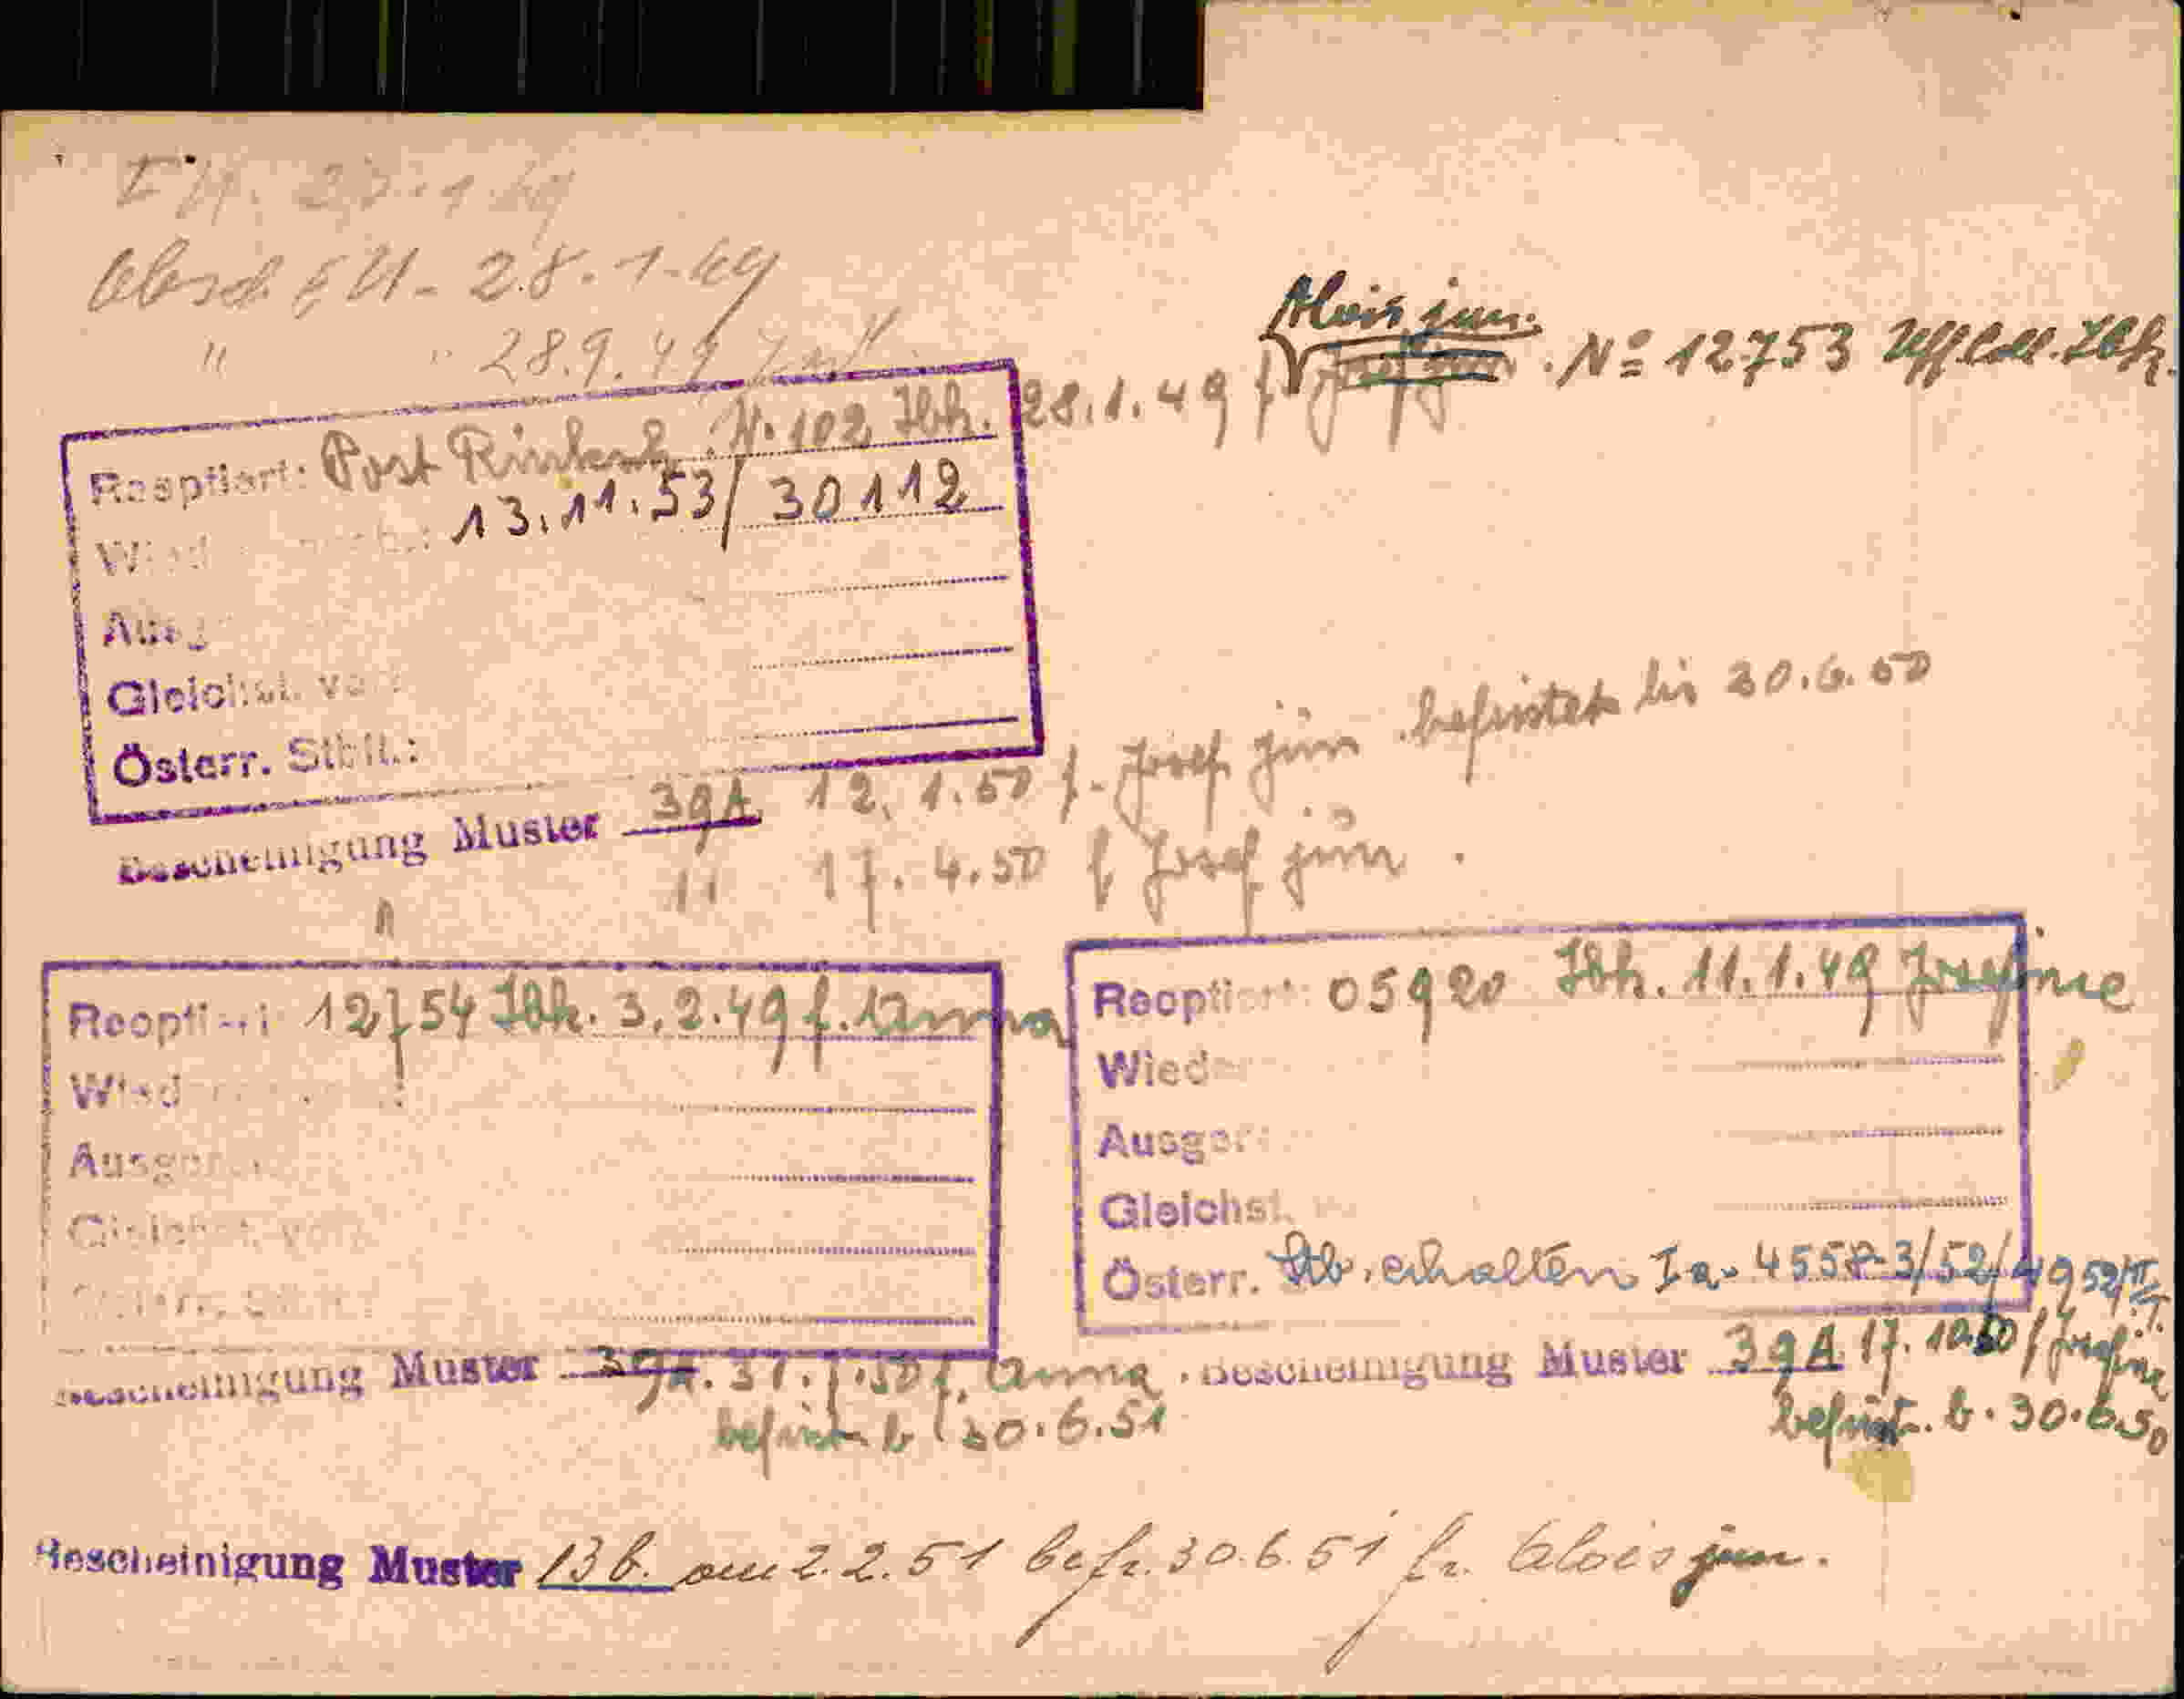 28.1.49
" " 28.9.49
Alois jun. No 12753
Reoptiert: Post N. 102 Ibk. 28.1.49 f
13.11.53/30112
Ausg
Gleichst. von:
Österr. Stblt.:
Bescheinigung Muster 39A 12.1.50 f. Josef jun befristet bis 30.6.50
" 17.4.50 f Josef jun.
Reoptiert 12754 Ibk. 3.2.49 f. Anna
Wied
Ausger
Gleichst. von
Österr.
Bescheinigung Muster 39A. 31.7.50 f. Anna
befrist. b 30.6.51
Reoptiert 05920 Ibk. 11.1.49 Josefine
Wied
Ausger
Gleichst.
Österr. Stb. erhalten Ia-
Bescheinigung Muster 39A 17. / Josefine
befrist. b. 30.6.50
Bescheinigung Muster 13b. am 2.2.51 befr. 30.6.51 fr. Alois jun.